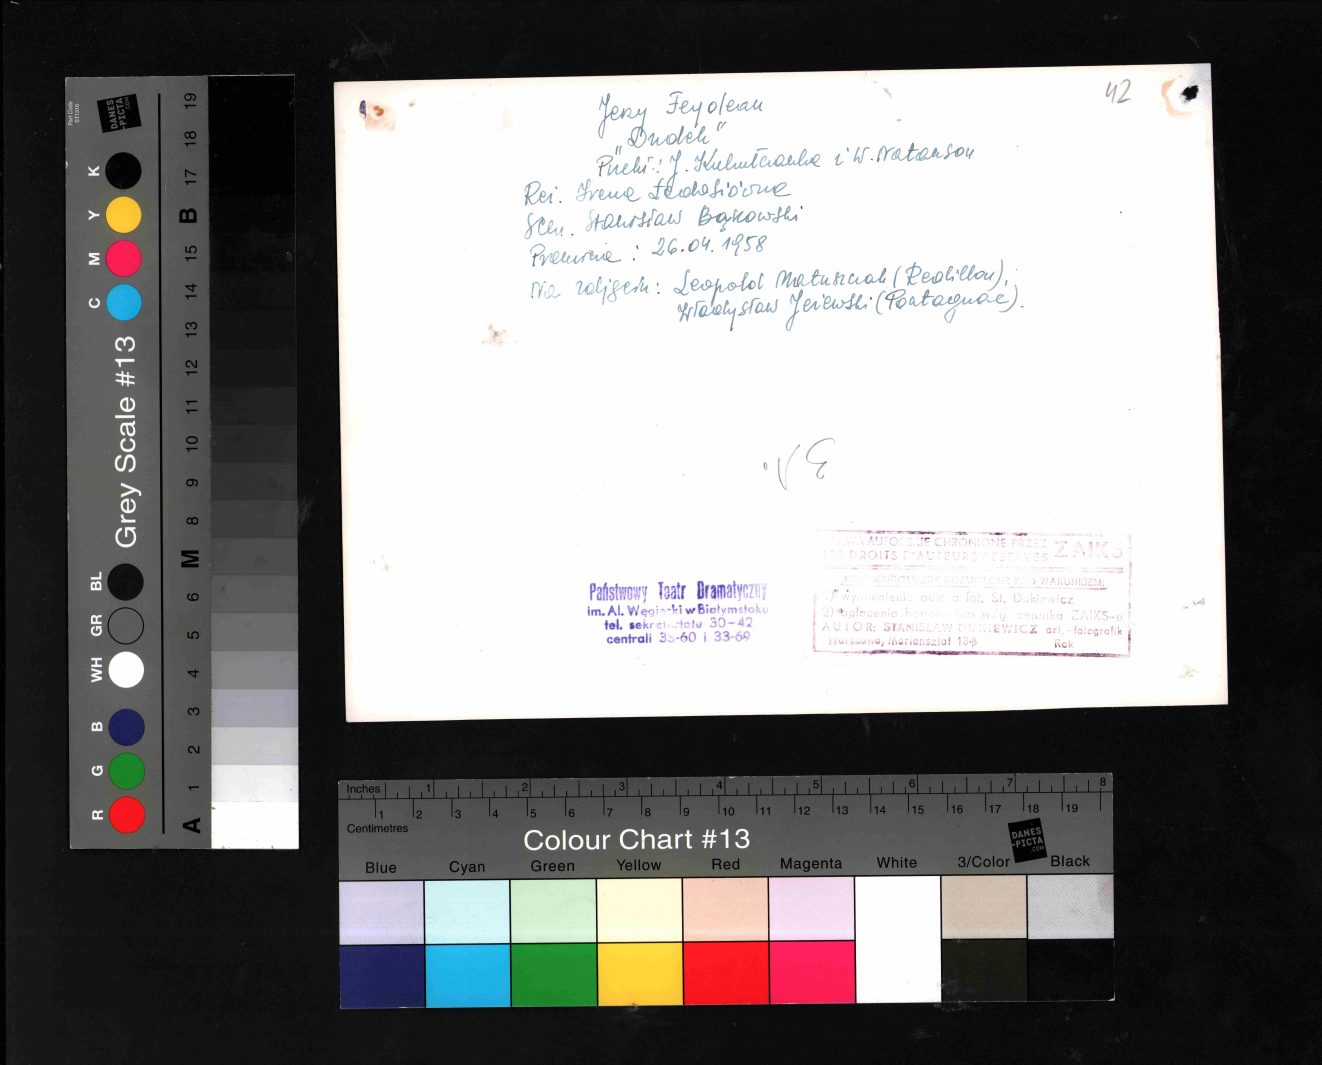 42
Jerzy Feydeau
"Dudek"
Przekł.: J. i W. Natanson
Reż. Irena
Scen. Stanisław Bąkowski
Premiera : 26.04.1958
Na zdjęciu: Leopold Matuszczak (Redillon),
Władysław Jeżewski (Pontagnac).
Państwowy Teatr Dramatyczny
im. Al. Węgierki w Białymstoku
tel. sekretariatu 30-42
centrali 33-60 i 33-69
PRAWA AUTORSKIE CHRONIONE PRZEZ ZAIKS
LES DROITS D'AUTEURS RESERVES
WARUNKIEM:
1) wymienienia autora fot. St. Dukiewicz
2) opłacenia honorarium wg. cennika ZAIKS-u
AUTOR: STANISŁAW DUKIEWICZ art.-fotografik
Warszawa, Mariensztat 13-8 Rok
Part Code
ST1316
DANES
-PICTA
.COM
Grey Scale #13
K Y M C
BL GR WH B G R
A 1 2 3 4 5 6 M 8 9 10 11 12 13 14 15 B 17 18 19
Inches 1 2 3 4 5 6 7 8
Centimetres 1 2 3 4 5 6 7 8 9 10 11 12 13 14 15 16 17 18 19
Colour Chart #13
DANES
-PICTA
.COM
Blue Cyan Green Yellow Red Magenta White 3/Color Black